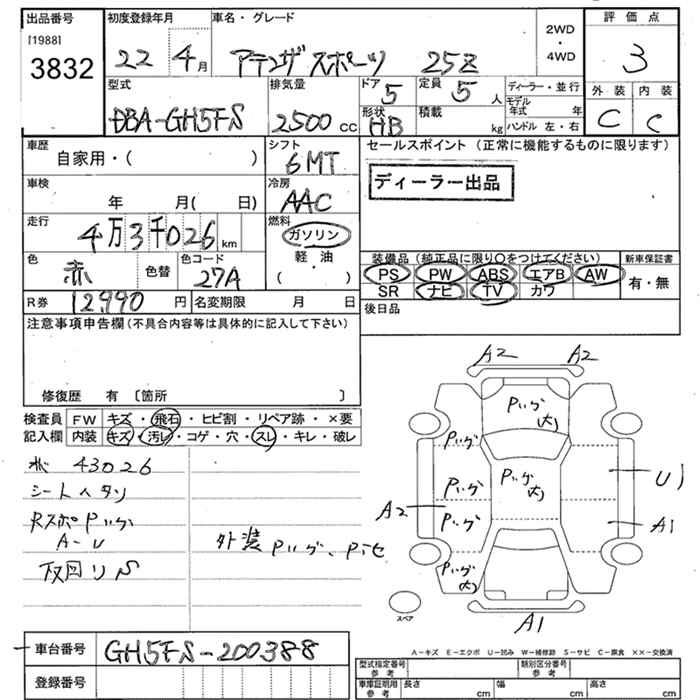 出品番号 初度登録年月 車名・グレード 2WD・4WD 評価点
[1988]
3832 22 4月 アテンザ スポーツ 25Z 3
型式 排気量 ドア 5 定員 5人 ディーラー・並行 外装 内装
DBA-GH5FS 2500cc 形状 HB 積載 kg モデル年式 年 C C
ハンドル 左・右
車歴 シフト セールスポイント (正常に機能するものに限ります)
自家用・( ) 6MT
車検 冷房 ディーラー出品
年 月( 日) AAC
走行 燃料
4万3千026km ガソリン
色 色替 色コード 軽油 装備品 (純正品に限り○をつけてください) 新車保証書
赤 27A ( ) PS PW ABS エアB AW 有・無
R券 12,990円 名変期限 月 日 SR ナビ TV カワ
注意事項申告欄 (不具合内容等は具体的に記入して下さい) 後日品
修復歴 有 〔箇所 〕
検査員 FW キズ・飛石・ヒビ割・リペア跡・×要
記入欄 内装 キズ・汚レ・コゲ・穴・スレ・キレ・破レ
43026
シートヘタリ
RスポPいグ
A-U
外装 Pいグ、Pデセ
A2 A2
Pいグ大
Pいグ
Pいグ Pいグ大 U1
A2 Pいグ A1
Pいグ大
スペア
A1
車台番号 GH5FS-200388
登録番号
A-キズ E-エクボ U-凹み W-補修跡 S-サビ C-腐食 ××-交換済
型式指定番号 参考 類別区分番号 参考
車庫証明用 参考 長さ cm 幅 cm 高さ cm